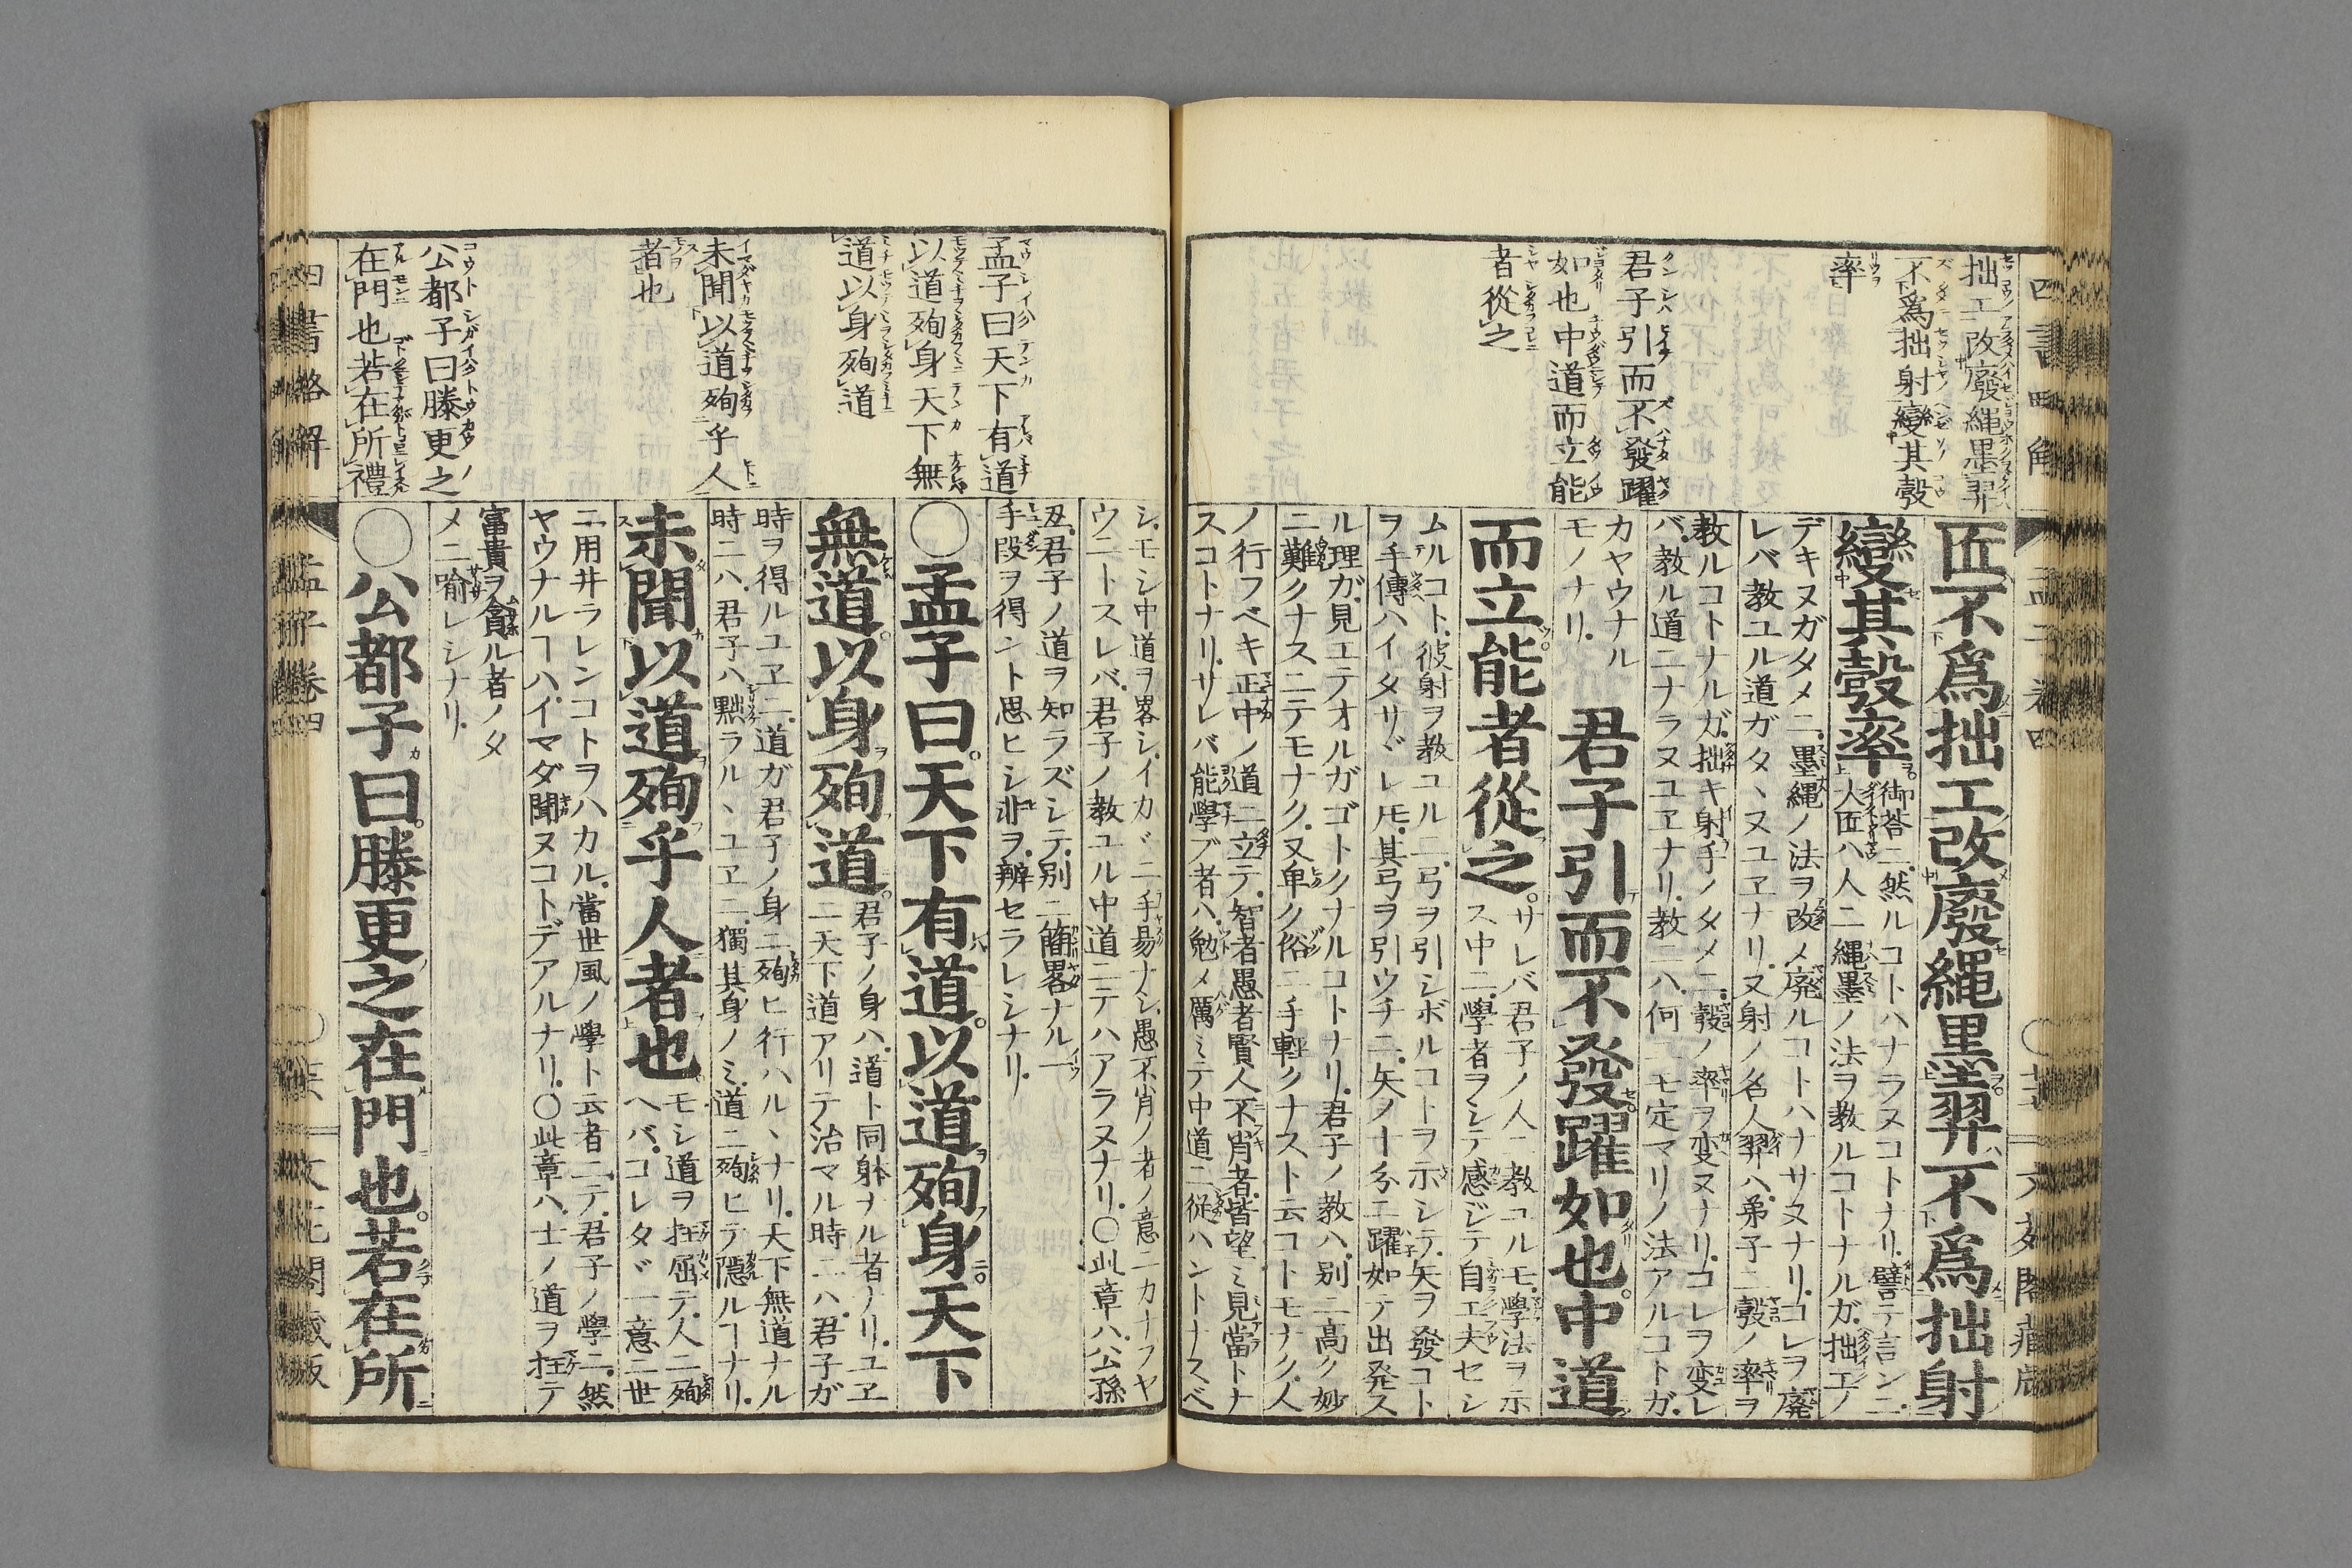 拙工改廢繩墨羿
不爲拙射變其彀
率
君子引而不發躍
如也中道而立能
者從之
匠不爲拙工改廢繩墨羿不爲拙射
變其彀率
御荅ニ然ルコトハナラヌコトナリ譬テ言ンニ
大匠ハ人ニ繩墨ノ法ヲ教ルコトナルガ拙工ノ
デキヌガタメニ墨繩ノ法ヲ改メ廃ルコトハナサヌナリコレヲ廃
レバ教ユル道ガタヽヌユヱナリ又射ノ名人羿ハ弟子ニ彀ノ率ヲ
教ルコトナルガ拙キ射手ノタメニ彀ノ率ヲ変ヌナリコレヲ変レ
バ教ル道ニナラヌユヱナリ教ニハ何ニモ定マリノ法アルコトガ
カヤウナル
モノナリ
君子引而不發躍如也中道
而立能者從之
サレバ君子ノ人ニ教ユルモ學法ヲ示
ス中ニ學者ヲシテ感ジテ自工夫セシ
ムルコト彼射ヲ教ユルニ弓ヲ引シボルコトヲ示シテ矢ヲ發コト
ヲ手傳ハイタサヾレ𪜈其弓ヲ引ウチニ矢ノ十分ニ躍如テ出発ス
ル理ガ見エテオルガゴトクナルコトナリ君子ノ教ハ別ニ高ク妙
ニ難クナスニテモナク又卑ク俗ニ手輕クナスト云コトモナク人
ノ行フベキ正中ノ道ニ立テ智者愚者賢人不肖者皆望ミ見當トナ
スコトナリサレバ能學ブ者ハ勉メ厲ミテ中道ニ從ハントナスベ
孟子曰天下有道
以道殉身天下無
道以身殉道
未聞以道殉乎人
者也
公都子曰滕更之
在門也若在所禮
シモシ中道ヲ畧シイカヾニ手易ナシ愚不肖ノ者ノ意ニカナフヤ
ウニトスレバ君子ノ教ユル中道ニテハアラヌナリ○此章ハ公孫
丑君子ノ道ヲ知ラズシテ別ニ簡畧ナル一
手段ヲ得ント思ヒシ非ヲ辨セラレシナリ
○孟子曰天下有道以道殉身天下
無道以身殉道
君子ノ身ハ道ト同躰ナル者ノリユヱ
ニ天下道アリテ治マル時ニハ君子ガ
時ヲ得ルユヱニ道ガ君子ノ身ニ殉ヒ行ハルヽナリ天下無道ナル
時ニハ君子ハ黜ラルヽユヱニ獨其身ノミ道ニ殉ヒテ隱ルヿナリ
未聞以道殉乎人者也
モシ道ヲ抂屈テ人ニ殉
ヘバコレタヾ一意ニ世
ニ用井ラレンコトヲハカル當世風ノ學ト云者ニテ君子ノ學ニ然
ヤウナルヿハイマダ聞ヌコトデアルナリ○此章ハ士ノ道ヲ抂テ
富貴ヲ貪ル者ノタ
メニ喩レシナリ
○公都子曰滕更之在門也若在所
四書略解
孟子卷四